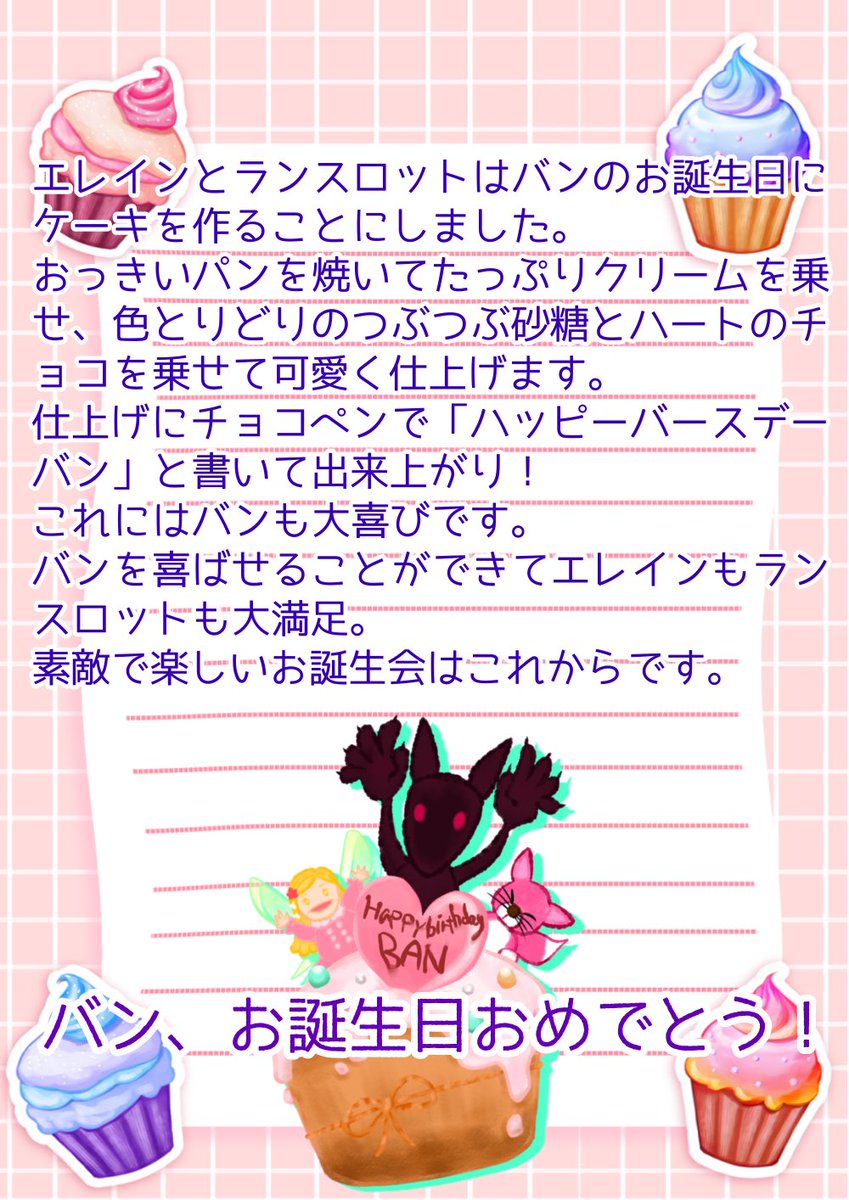 エレインとランスロットはバンのお誕生日に
ケーキを作ることにしました。
おっきいパンを焼いてたっぷりクリームを乗
せ、色とりどりのつぶつぶ砂糖とハートのチ
ョコを乗せて可愛く仕上げます。
仕上げにチョコペンで「ハッピーバースデー
バン」と書いて出来上がり！
これにはバンも大喜びです。
バンを喜ばせることができてエレインもラン
スロットも大満足。
素敵で楽しいお誕生会はこれからです。
Happy birthday
BAN
バン、お誕生日おめでとう！